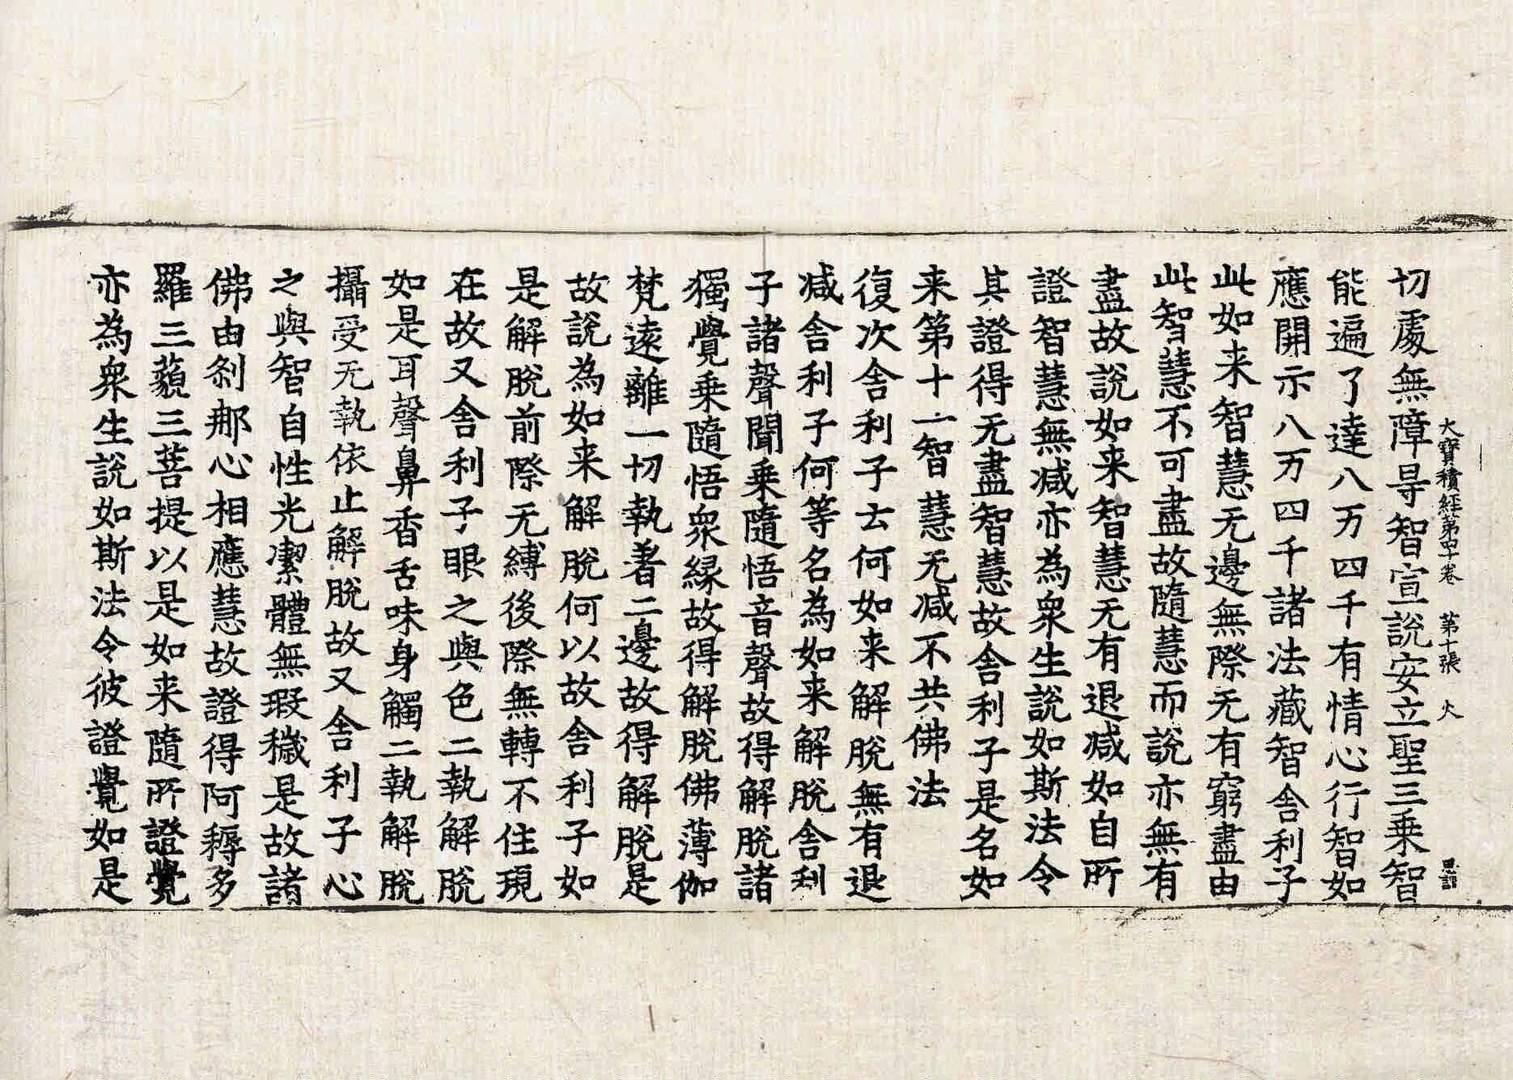 大寶積經第四十卷　第十張　火
切處無障㝵智宣說安立聖三乗智
能遍了達八万四千有情心行智如
應開示八万四千諸法藏智舍利子
此如来智慧无邊無際无有窮盡由
此智慧不可盡故隨慧而說亦無有
盡故說如来智慧无有退减如自所
證智慧無减亦為衆生說如斯法令
其證得无盡智慧故舍利子是名如
来第十一智慧无减不共佛法
復次舍利子云何如来解脫無有退
减舍利子何等名為如来解脫舍利
子諸聲聞乗隨悟音聲故得解脫諸
獨覺乗隨悟衆緣故得解脫佛薄伽
梵遠離一切執著二邊故得解脫是
故說為如来解脫何以故舍利子如
是解脫前際无縛後際無轉不住現
在故又舍利子眼之與色二執解脫
如是耳聲鼻香舌味身觸二執解脫
攝受无執依止解脫故又舍利子心
之與智自性光潔體無瑕穢是故諸
佛由剎那心相應慧故證得阿耨多
羅三藐三菩提以是如来隨所證覺
亦為衆生說如斯法令彼證覺如是